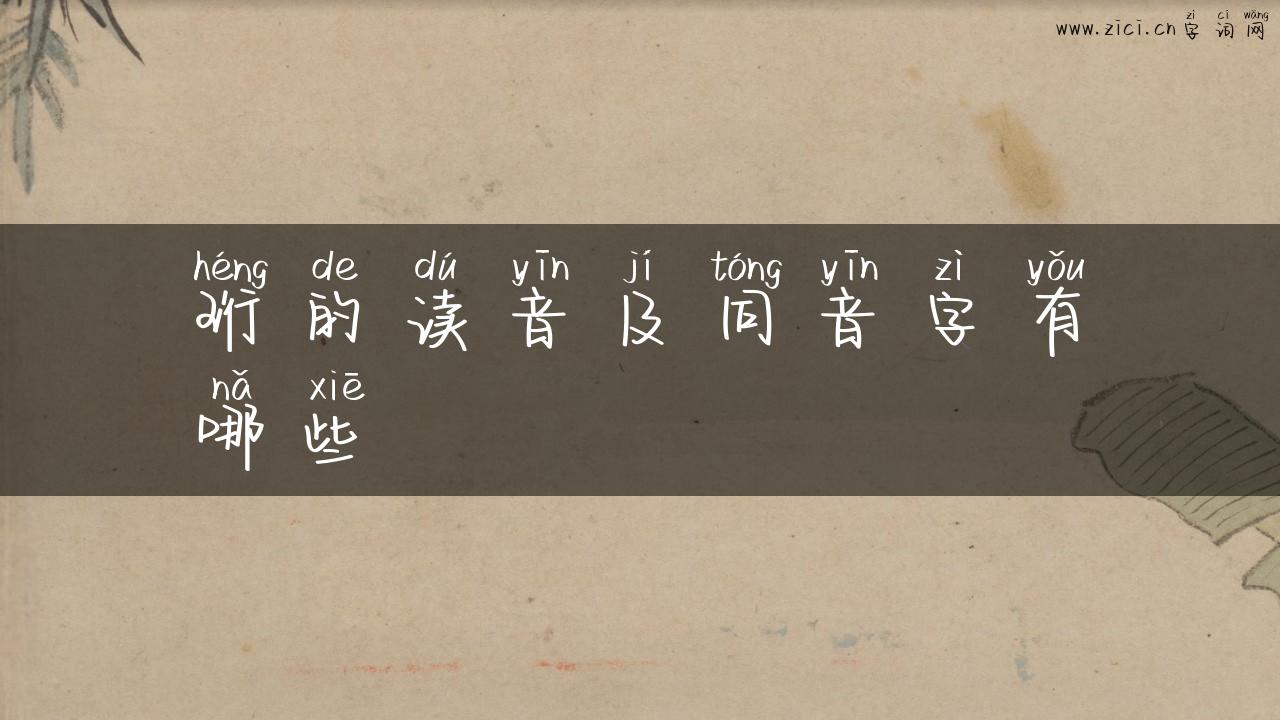 www.zici.cn
zì cí wǎng
字词网
héng de dú yīn jí tóng yīn zì yǒu
珩的读音及同音字有
nǎ xiē
哪些